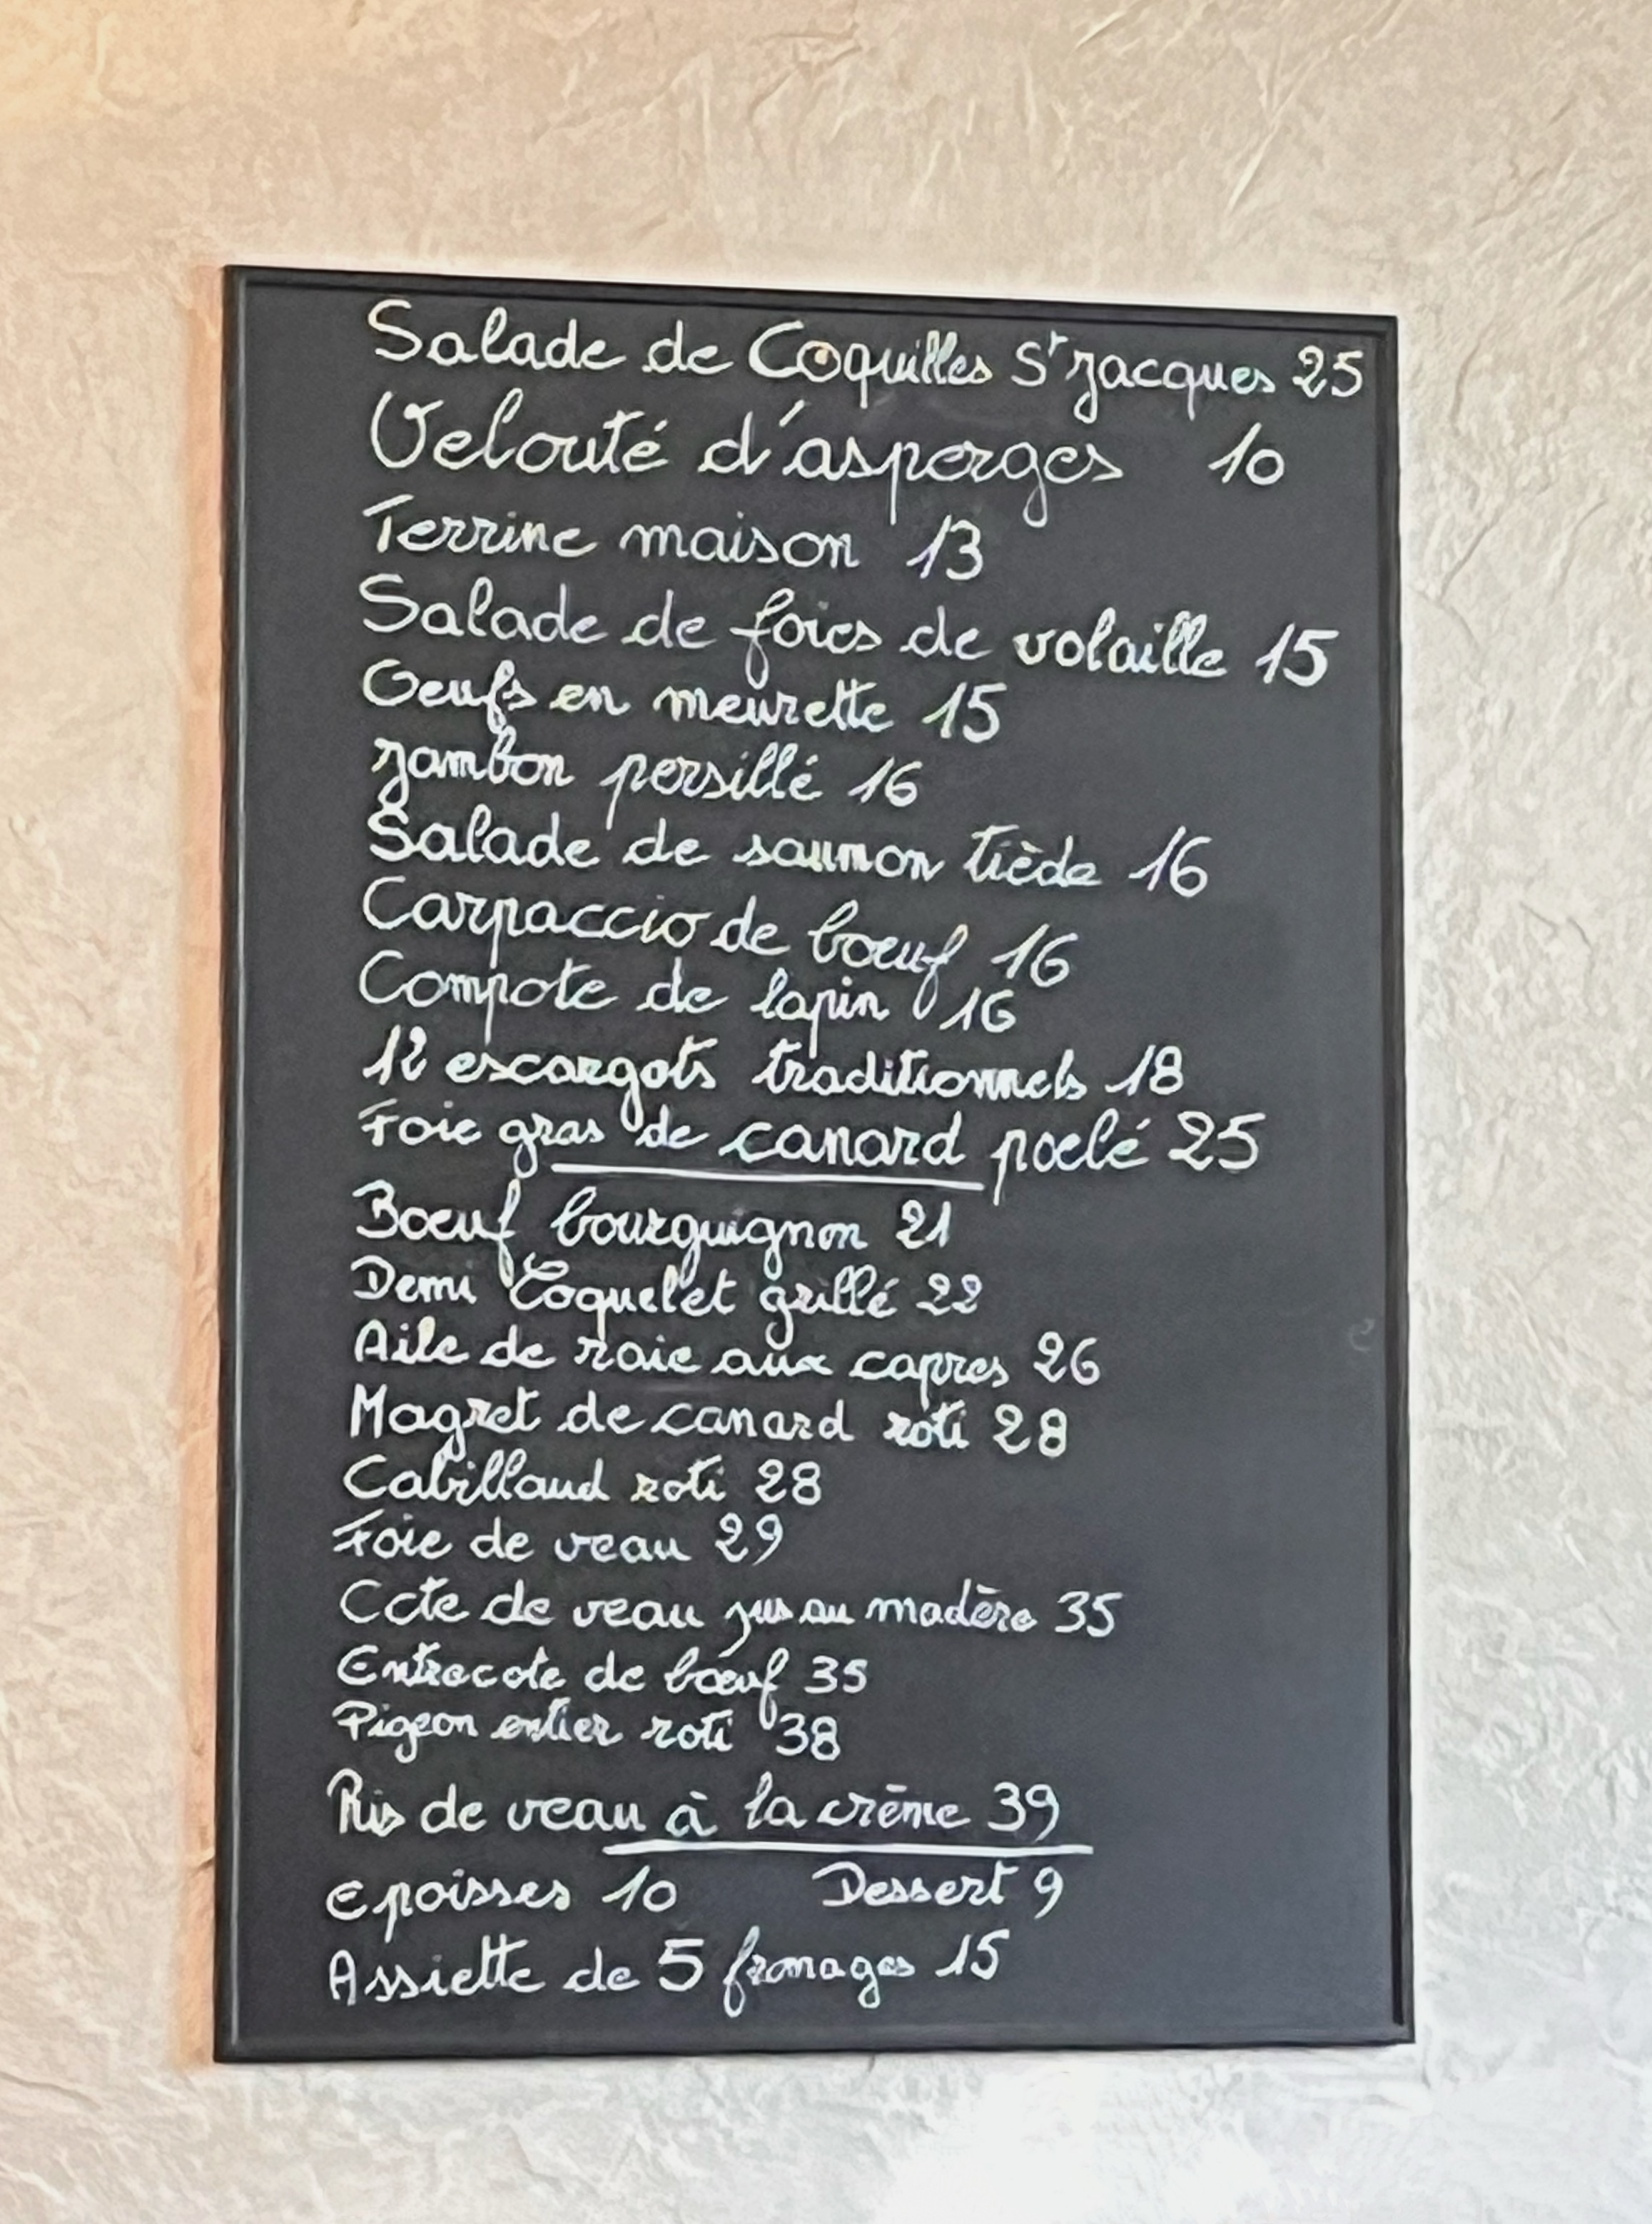 Salade de Coquilles St Jacques 25
Velouté d'asperges 10
Terrine maison 13
Salade de foies de volaille 15
Oeufs en meurette 15
Jambon persillé 16
Salade de saumon tiède 16
Carpaccio de boeuf 16
Compote de lapin 16
12 escargots traditionnels 18
Foie gras de canard poelé 25
Boeuf bourguignon 21
Demi Coquelet grillé 22
Aile de raie aux capres 26
Magret de canard roti 28
Cabillaud roti 28
Foie de veau 29
Cote de veau jus au madère 35
Entrecote de boeuf 35
Pigeon entier roti 38
Ris de veau à la crème 39
Epoisses 10 Dessert 9
Assiette de 5 fromages 15